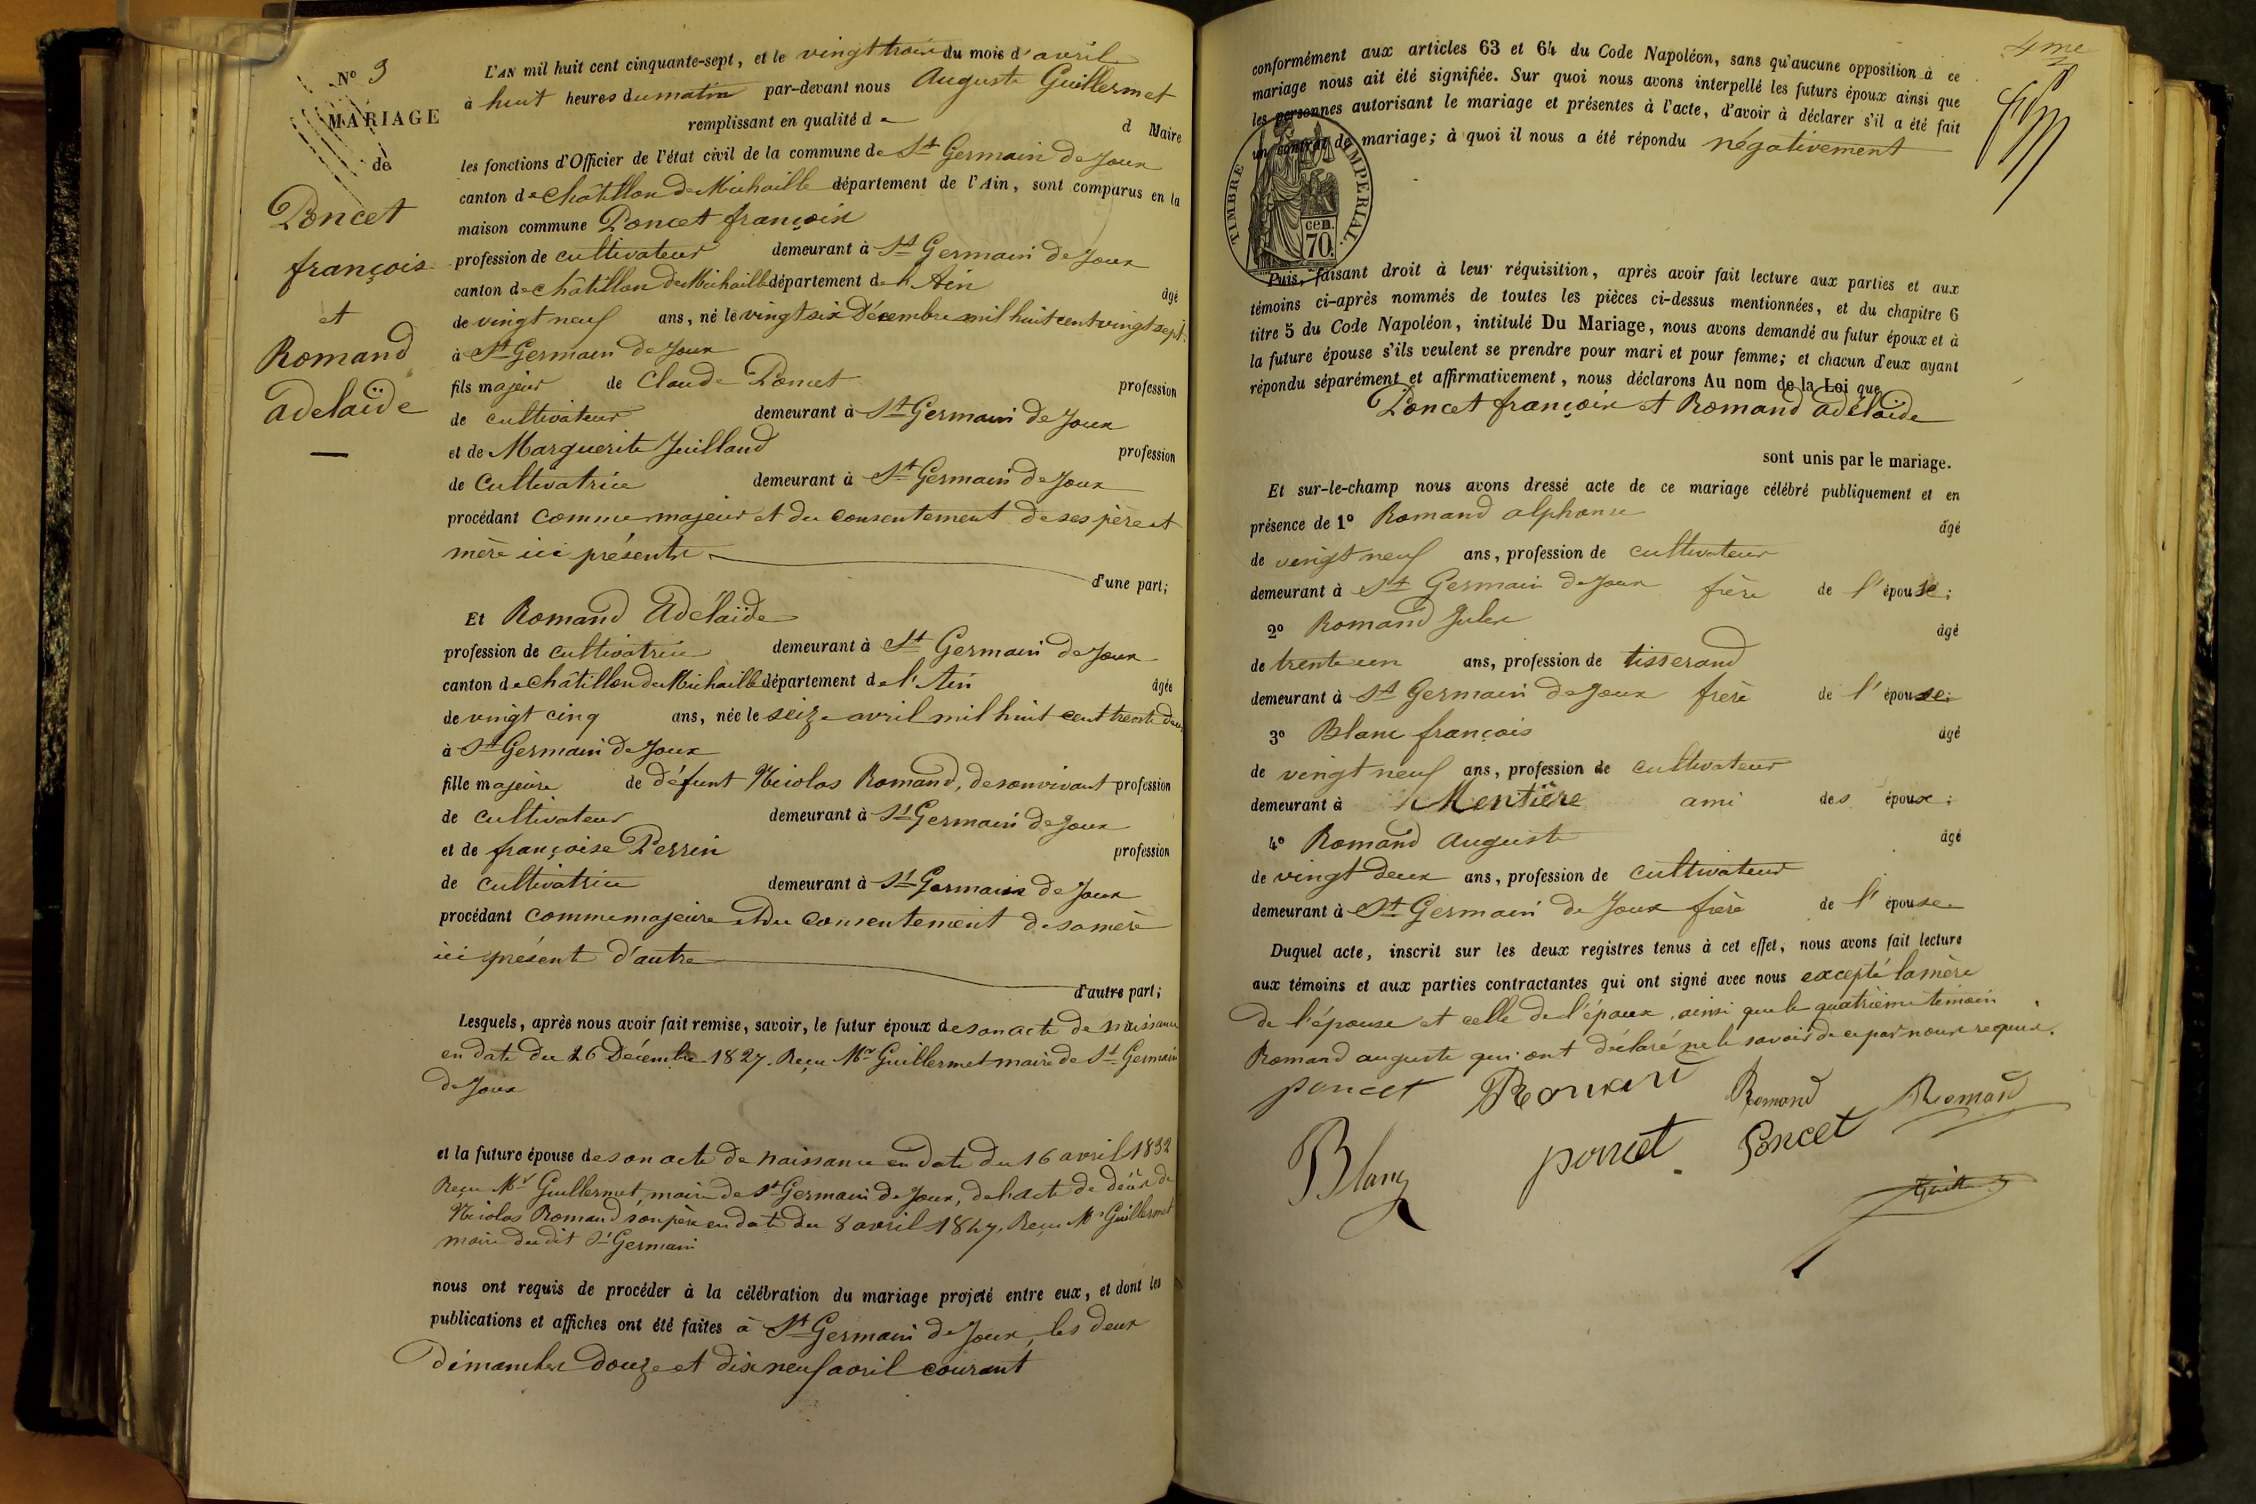 No 3
MARIAGE
de
Poncet
françois
et
Romand
adelaïde
L'AN mil huit cent cinquante-sept, et le vingt trois du mois d'avril
à huit heures du matin par-devant nous Auguste Guillermet
remplissant en qualité de d Maire
les fonctions d'Officier de l'état civil de la commune de St Germain de Joux
canton de Châtillon de Michaille département de l'Ain, sont comparus en la
maison commune Poncet françois
profession de cultivateur demeurant à St Germain de Joux
canton de châtillon de Michaille département de l'Ain âgé
de vingt neuf ans, né le vingt six Décembre mil huit cent vingt sept
à St Germain de Joux
fils majeur de Claude Poncet profession
de cultivateur demeurant à St Germain de Joux
et de Marguerite Juilland profession
de Cultivatrice demeurant à St Germain de Joux
procédant comme majeur et du consentement de ses père et
mère ici présents
d'une part;
Et Romand Adélaïde
profession de cultivatrice demeurant à St Germain de Joux
canton de châtillon de Michaille département de l'Ain âgée
de vingt cinq ans, née le seize avril mil huit cent trente deux
à St Germain de Joux
fille majeure de défunt Nicolas Romand, de son vivant profession
de cultivateur demeurant à St Germain de Joux
et de françoise Perrin profession
de cultivatrice demeurant à St Germain de Joux
procédant comme majeure et du consentement de sa mère
ici présente d'autre
d'autre part;
Lesquels, après nous avoir fait remise, savoir, le futur époux de son acte de naissance
en date du 26 Décembre 1827. Reçu Mr Guillermet maire de St Germain
de Joux
et la future épouse de son acte de naissance en date du 16 avril 1832
Reçu Mr Guillermet, maire de St Germain de Joux, de l'acte de décès de
Nicolas Romand son père en date du 8 avril 1847. Reçu Mr Guillermet
maire dudit St Germain
nous ont requis de procéder à la célébration du mariage projeté entre eux, et dont les
publications et affiches ont été faites à St Germain de Joux, les deux
Dimanches douze et dix neuf avril courant
4me
conformément aux articles 63 et 64 du Code Napoléon, sans qu'aucune opposition à ce
mariage nous ait été signifiée. Sur quoi nous avons interpellé les futurs époux ainsi que
les personnes autorisant le mariage et présentes à l'acte, d'avoir à déclarer s'il a été fait
un contrat de mariage; à quoi il nous a été répondu négativement
TIMBRE IMPÉRIAL.
70 cen.
Puis, faisant droit à leur réquisition, après avoir fait lecture aux parties et aux
témoins ci-après nommés de toutes les pièces ci-dessus mentionnées, et du chapitre 6
titre 5 du Code Napoléon, intitulé Du Mariage, nous avons demandé au futur époux et à
la future épouse s'ils veulent se prendre pour mari et pour femme; et chacun d'eux ayant
répondu séparément et affirmativement, nous déclarons Au nom de la Loi que
Poncet françois et Romand adélaïde
sont unis par le mariage.
Et sur-le-champ nous avons dressé acte de ce mariage célébré publiquement et en
présence de 1o Romand alphonse âgé
de vingt neuf ans, profession de cultivateur
demeurant à St Germain de Joux frère de l'épouse;
2o Romand Jules âgé
de trente un ans, profession de tisserand
demeurant à St Germain de Joux frère de l'épouse;
3o Blanc françois âgé
de vingt neuf ans, profession de cultivateur
demeurant à Mentière ami des époux;
4o Romand Auguste âgé
de vingt deux ans, profession de cultivateur
demeurant à St Germain de Joux frère de l'épouse
Duquel acte, inscrit sur les deux registres tenus à cet effet, nous avons fait lecture
aux témoins et aux parties contractantes qui ont signé avec nous excepté la mère
de l'épouse et celle de l'époux, ainsi que le quatrième témoin
Romand auguste qui ont déclaré ne le savoir de ce par nous requis.
poncet Romand Romand Romand
Blanc poncet Poncet